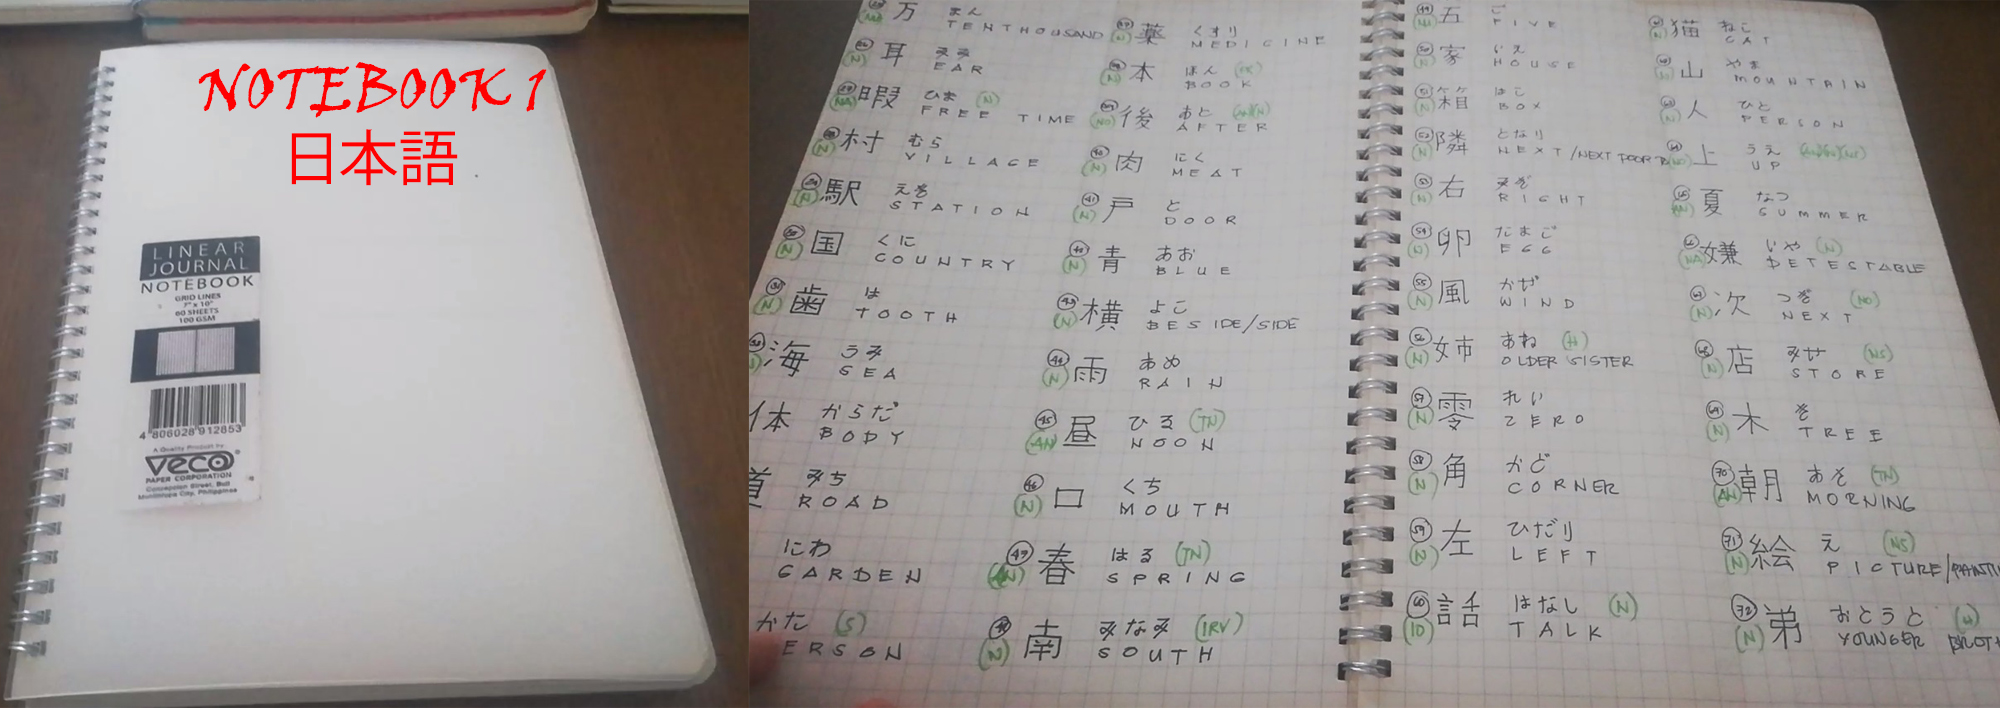 NOTEBOOK 1
日本語
LINEAR
JOURNAL
NOTEBOOK
GRID LINES
7" x 10"
60 SHEETS
100 GSM
4 806028 912853
A Quality Product by
veco
PAPER CORPORATION
Muntinlupa City, Philippines
万 まん
TEN THOUSAND
耳 みみ
(N) EAR
暇 ひま (N)
(NA) FREE TIME
村 むら
(N) VILLAGE
駅 えき
(N) STATION
国 くに
(N) COUNTRY
歯 は
(N) TOOTH
海 うみ
SEA
体 からだ
BODY
みち
ROAD
にわ
GARDEN
かた (S)
ERSON
薬 くすり
(N) MEDICINE
本 ほん
(N) BOOK
後 あと
(NO) AFTER
肉 にく
(N) MEAT
41 戸 と
(N) DOOR
青 あお
(N) BLUE
43 横 よこ
(N) BESIDE/SIDE
44 雨 あめ
(N) RAIN
45 昼 ひる (TN)
(AN) NOON
46 口 くち
(N) MOUTH
47 春 はる (TN)
SPRING
南 みなみ (IRV)
(N) SOUTH
49 五 ご
FIVE
50 家 いえ
(N) HOUSE
51 箱 はこ
(N) BOX
52 隣 となり
(N) NEXT/NEXT DOOR
53 右 みぎ
(N) RIGHT
54 卵 たまご
(N) EGG
55 風 かぜ
(N) WIND
56 姉 あね (H)
(N) OLDER SISTER
57 零 れい
(N) ZERO
58 角 かど
(N) CORNER
59 左 ひだり
(N) LEFT
60 話 はなし (N)
(ID) TALK
猫 ねこ
(N) CAT
山 やま
MOUNTAIN
人 ひと
(N) PERSON
上 うえ
UP
65 夏 なつ
SUMMER
嫌 いや (N)
(NA) DETESTABLE
67 次 つぎ (NO)
(N) NEXT
68 店 みせ (NS)
(N) STORE
69 木 き
(N) TREE
70 朝 あさ (TN)
(AN) MORNING
71 絵 え (NS)
(N) PICTURE/
72 弟 おとうと (H)
(N) YOUNGER BROT